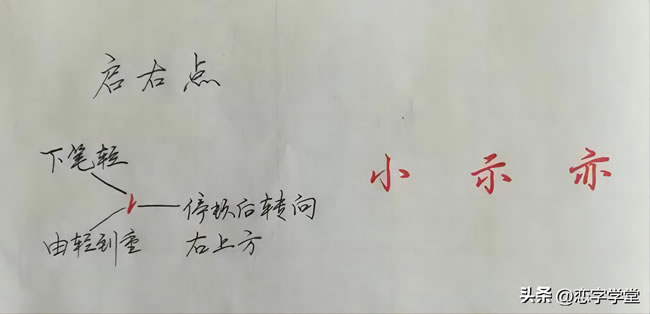 启右点
下笔轻
停顿后转向
由轻到重
右上方
小 示 亦
头条 @恋字学堂